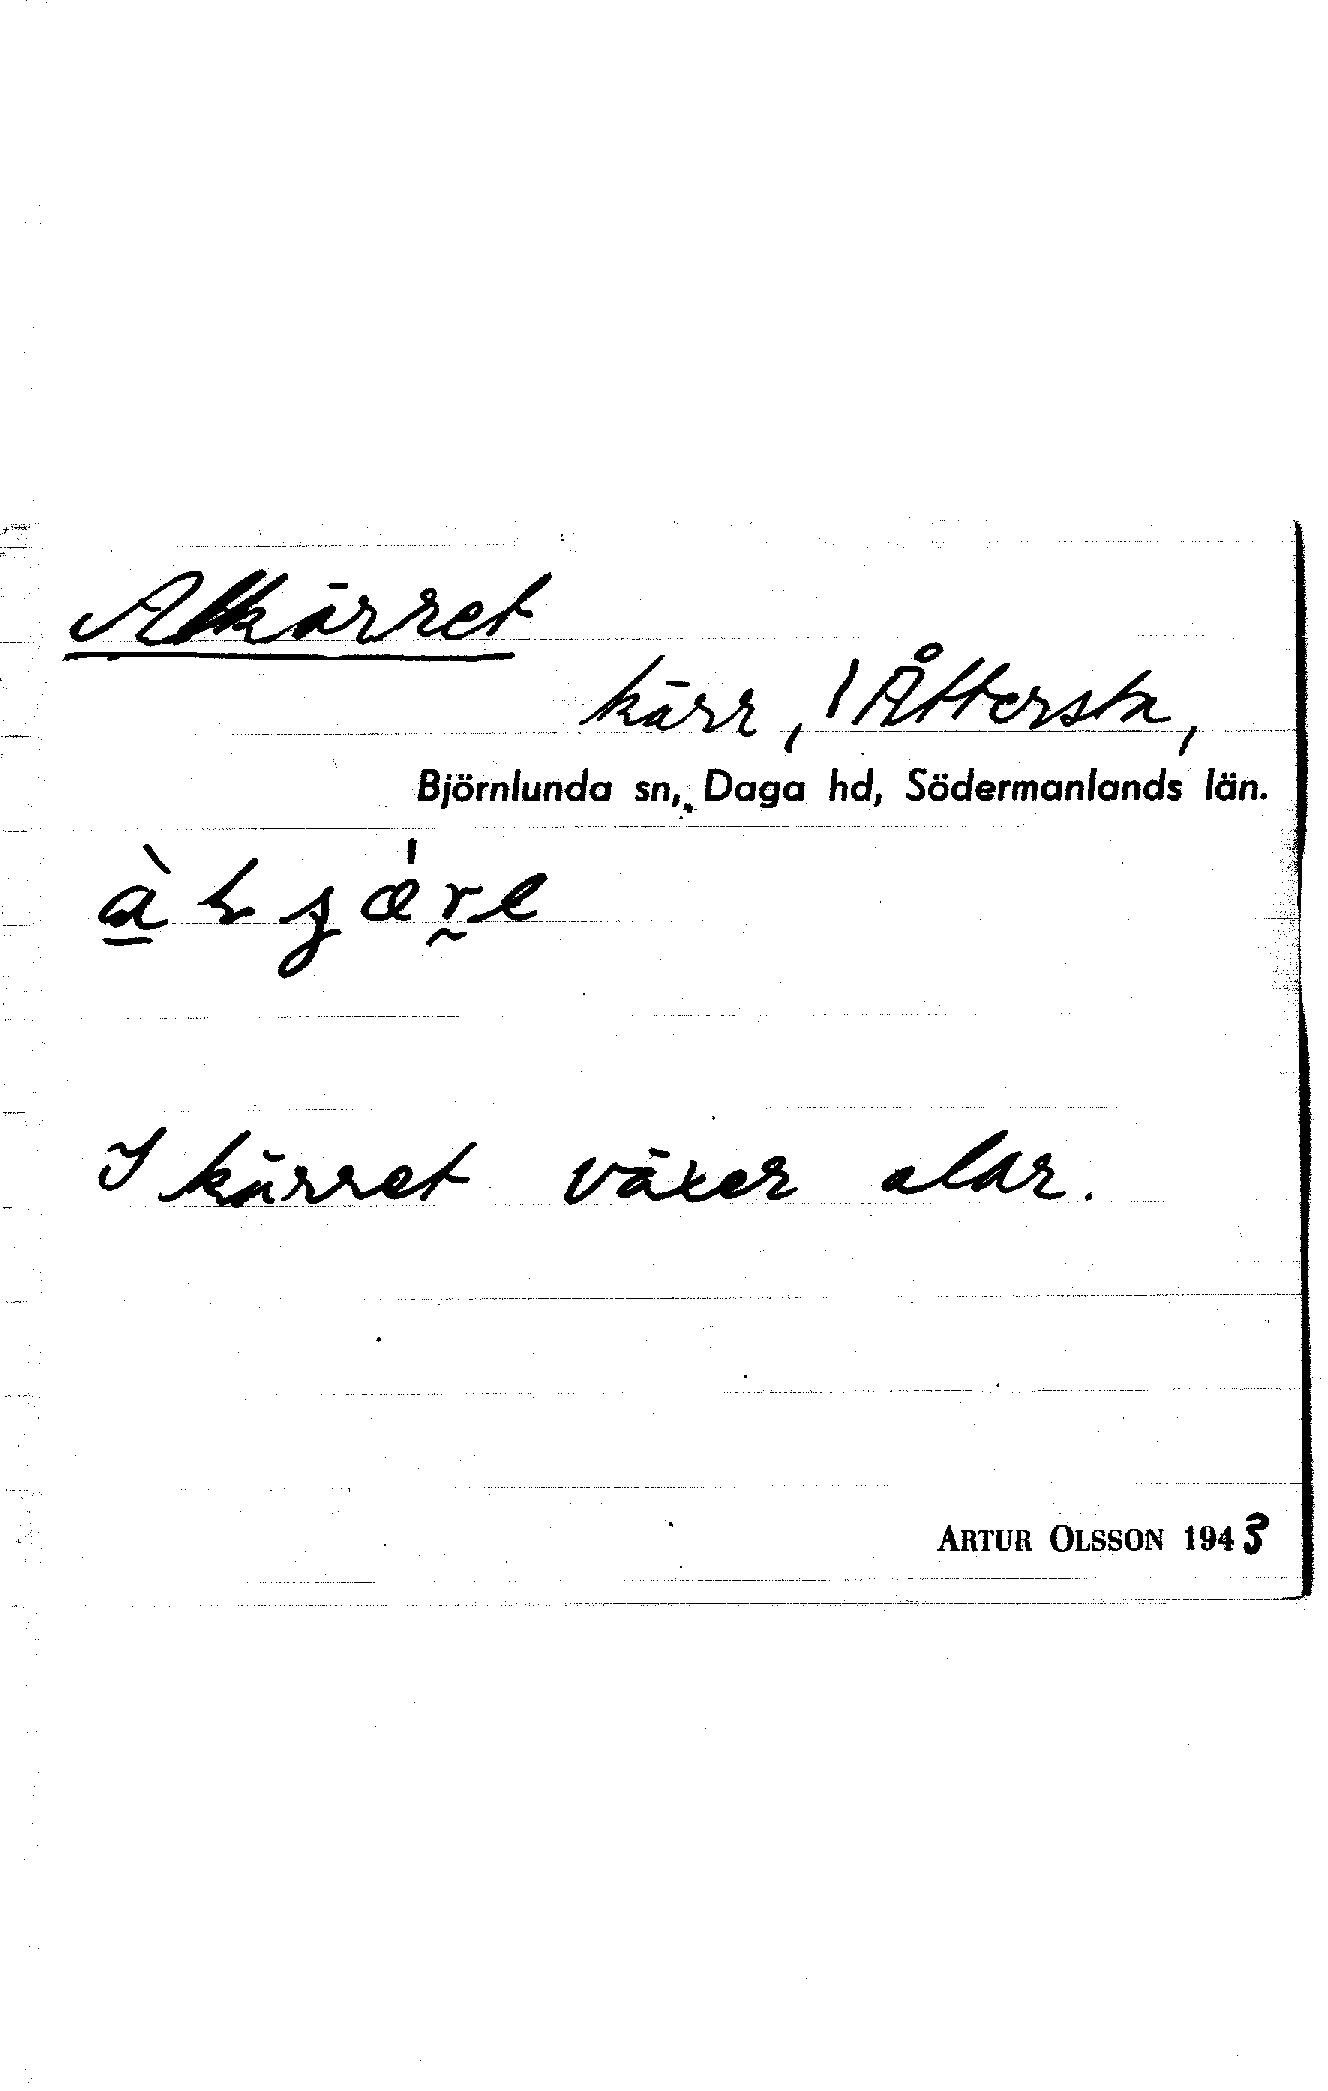 Alkärret
kärr, 1 Åttersta,
Björnlunda sn, Daga hd, Södermanlands län.
I kärret växer alar.
ARTUR OLSSON 1943